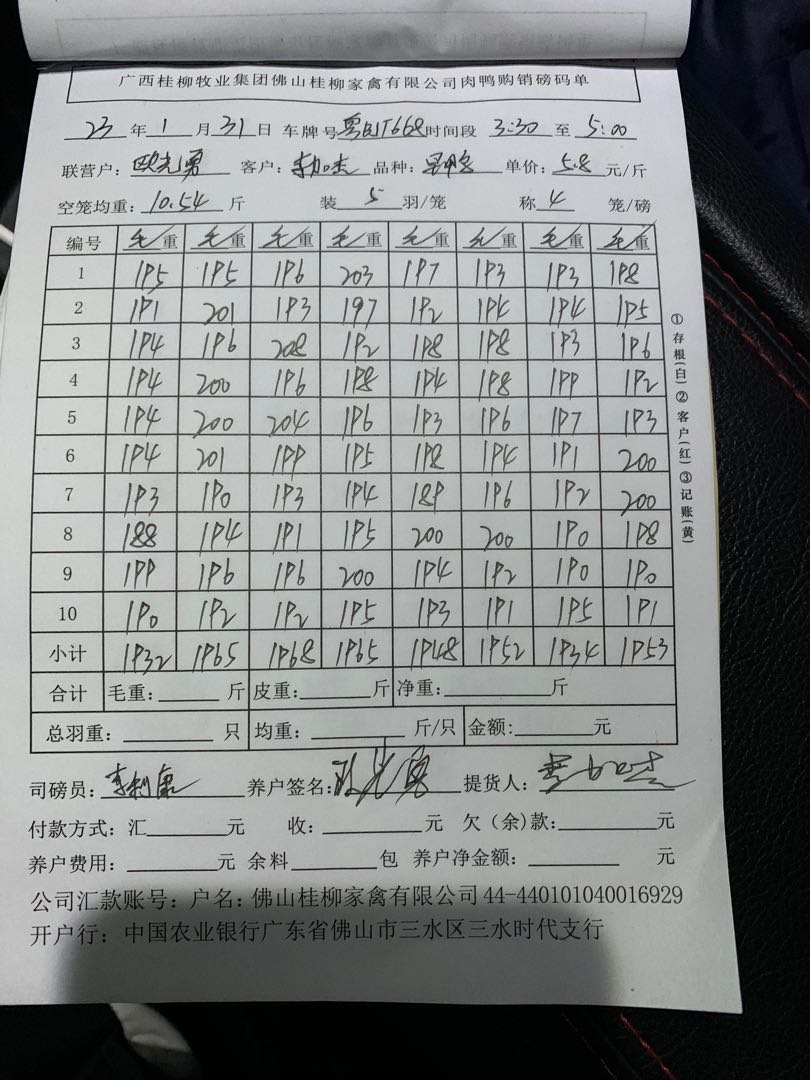 广西桂柳牧业集团佛山桂柳家禽有限公司肉鸭购销磅码单
23 年 1 月 31 日 车牌号 时间段 3:30 至 5:00
联营户：欧光勇 客户：李加杰 品种： 单价：5.8 元/斤
空笼均重：10.54 斤 装 5 羽/笼 称 4 笼/磅
编号 毛重 毛重 毛重 毛重 毛重 毛重 毛重 毛重
1 195 195 196 203 197 193 193 198
2 191 201 193 197 192 194 194 195
3 194 196 208 192 198 198 193 196
4 194 200 196 198 194 198 199 192
5 194 200 204 196 193 196 197 193
6 194 201 199 195 198 194 191 200
7 193 190 193 194 189 196 192 200
8 188 194 191 195 200 200 190 198
9 199 196 196 200 194 192 190 190
10 190 192 192 195 193 191 195 191
小计 1932 1965 1968 1965 1948 1952 1934 1953
合计 毛重：斤 皮重：斤 净重：斤
总羽重：只 均重：斤/只 金额：元
①存根(白)②客户(红)③记账(黄)
司磅员：李利康 养户签名：欧光勇 提货人：李加杰
付款方式：汇 元 收：元 欠（余）款：元
养户费用：元 余料 包 养户净金额：元
公司汇款账号：户名：佛山桂柳家禽有限公司 44-440101040016929
开户行：中国农业银行广东省佛山市三水区三水时代支行